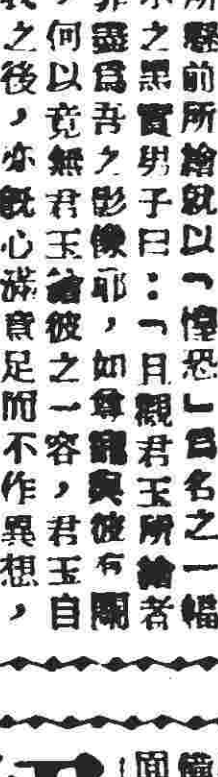 懸前所繪就以「惶恐」爲名之一幅
之黑實男子曰：「且觀君玉所繪者
盡爲吾之影像耶，如尊寵與彼有關
何以竟無君玉繪彼之一容，君玉自
之後，亦旣心滿意足而不作異想，